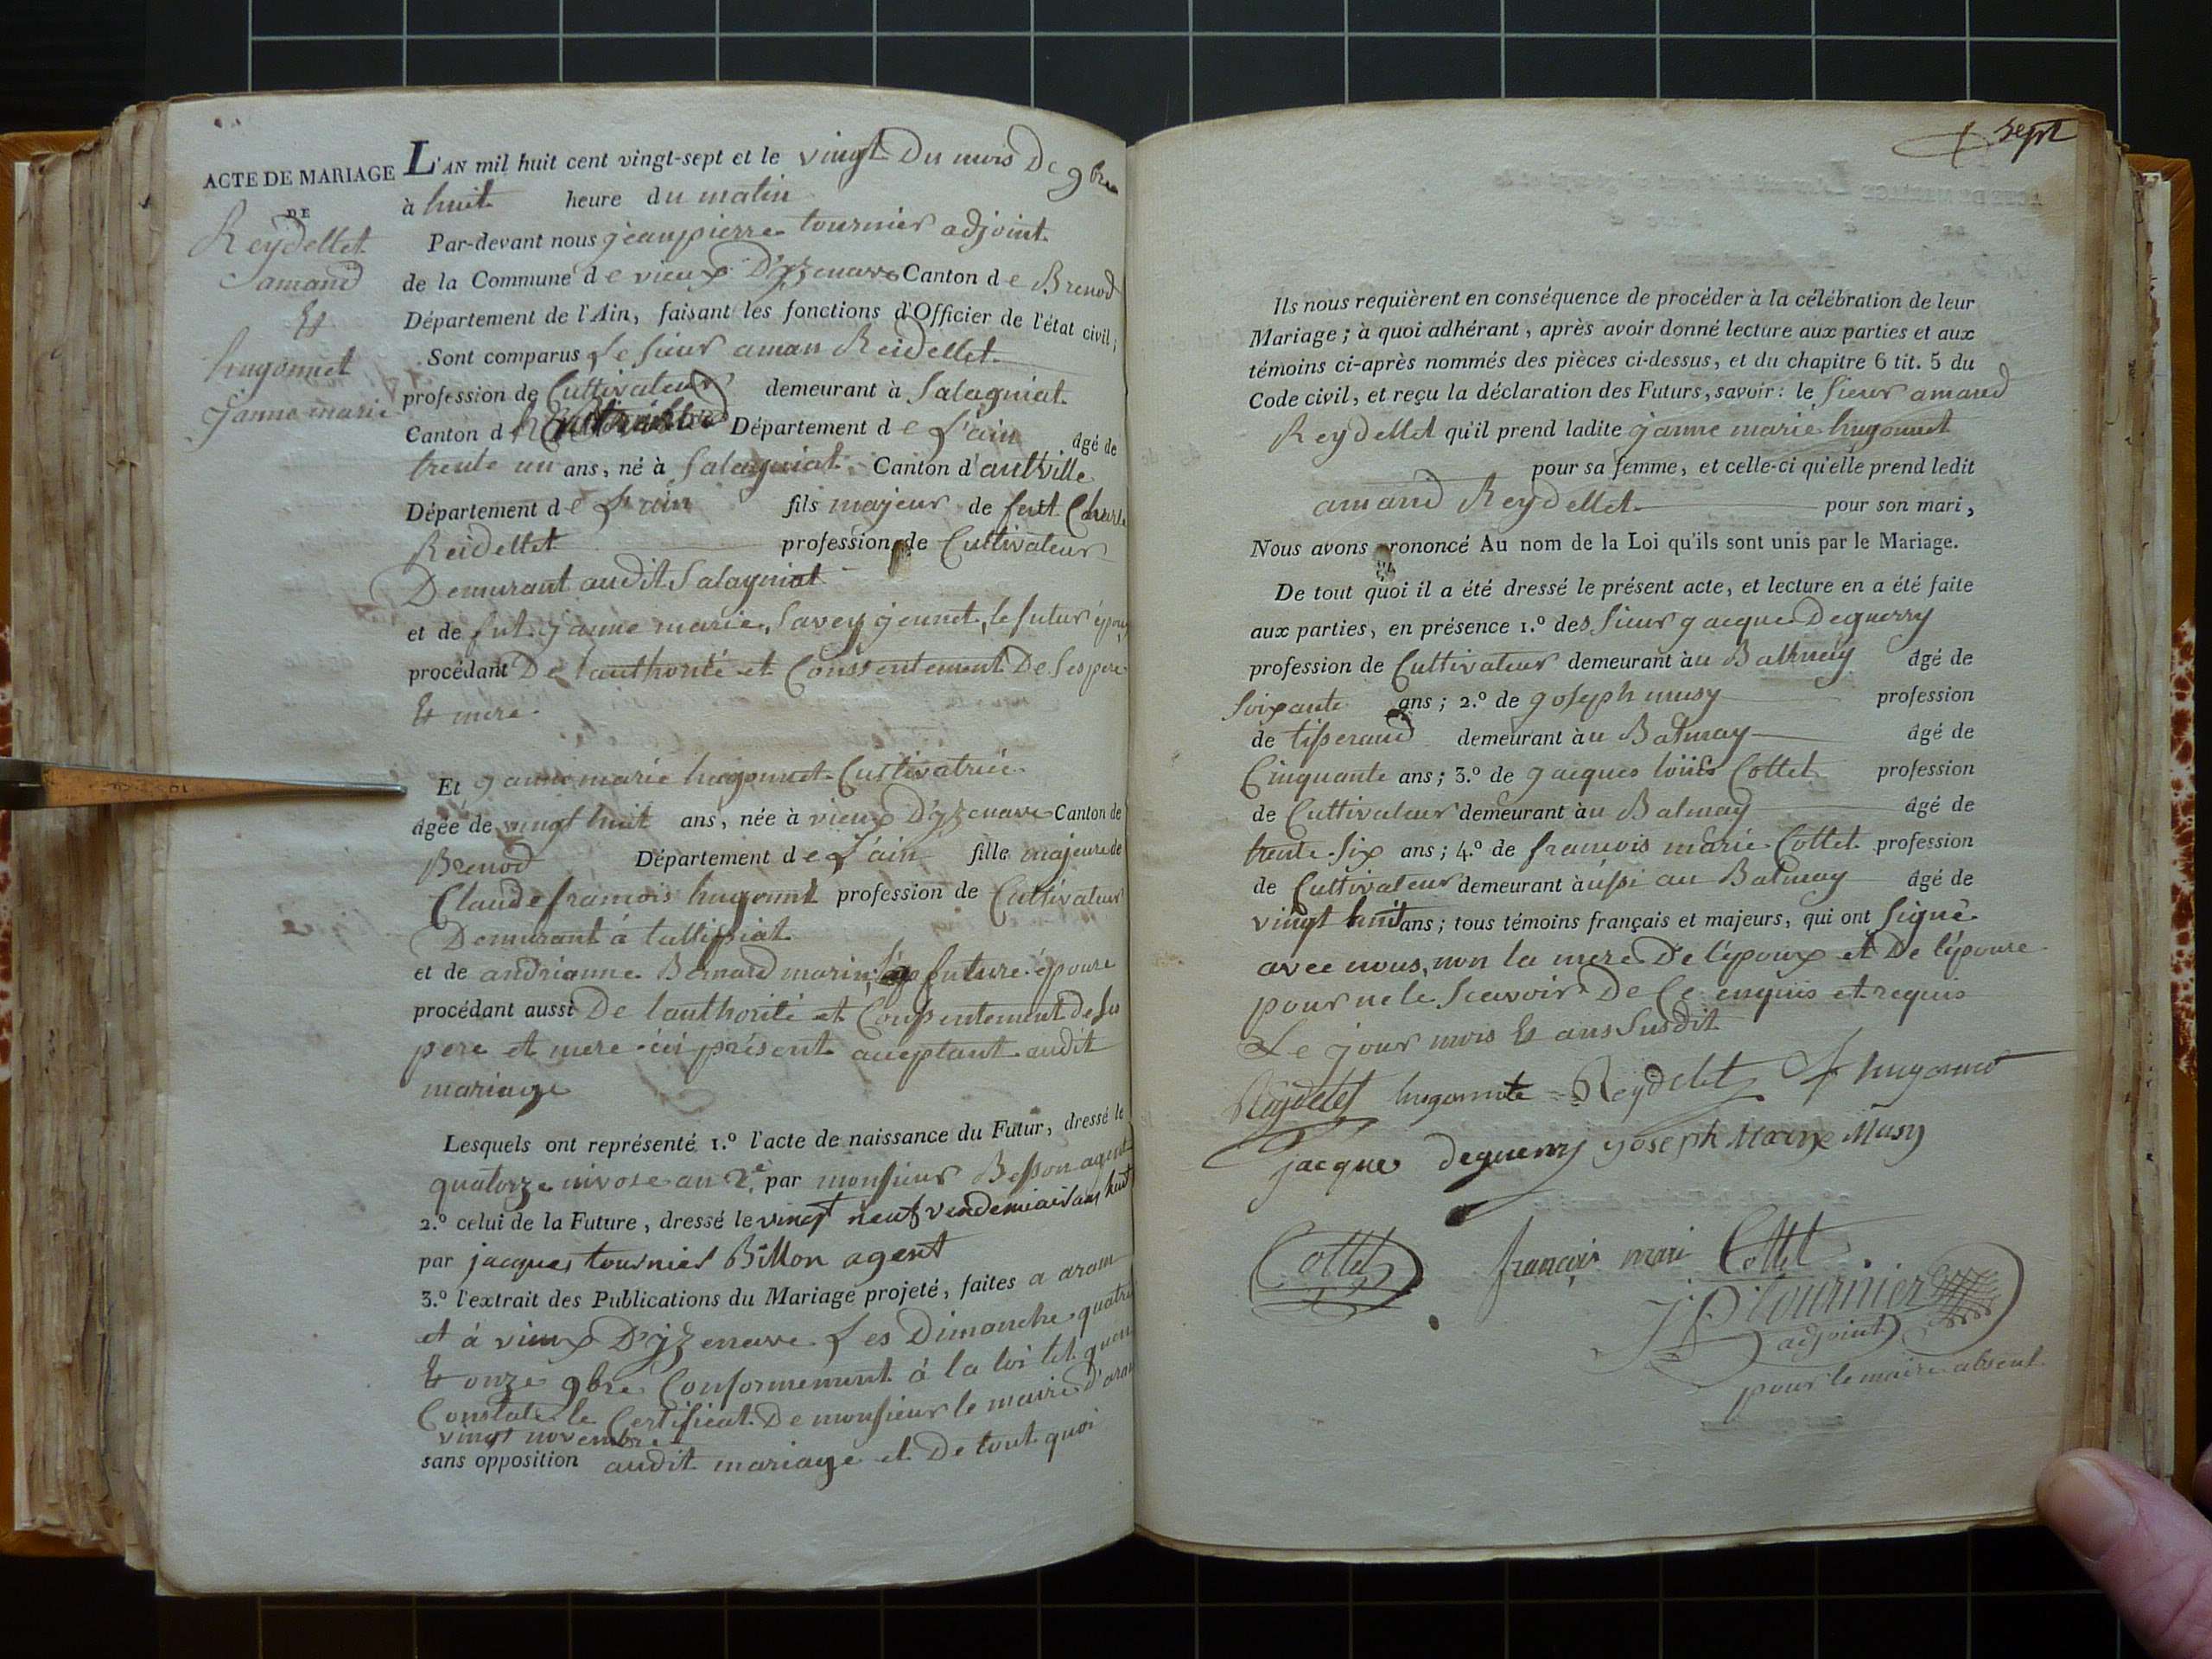 ACTE DE MARIAGE
DE
Reydellet
amand
Et
hugonnet
Janne marie
L'AN mil huit cent vingt-sept et le vingt Du mois De 9bre
à huit heure du matin
Par-devant nous jean pierre tournier adjoint
de la Commune de vieux D'yzenave Canton de Brenod
Département de l'Ain, faisant les fonctions d'Officier de l'état civil;
Sont comparus Le sieur aman Reidellet
profession de Cultivateur demeurant à Salagniat
Canton d Département de L'ain âgé de
trente un ans, né à Salagniat Canton d'autville
Département de L'ain fils majeur de feut Charle
Reidellet profession de Cultivateur
Demurant audit Salagniat
et de fut janne marie Savey jennet, le futur époux
procédant De l'authorité et Conssentement De Ses pere
Et mere
Et janne marie hugonnet Cultivatrice
âgée de vingt huit ans, née à vieux D'yzenave Canton de
Brenod Département de L'ain fille majeure de
Claude francois hugonnet profession de Cultivateur
Demurant à tallissiat
et de andrianne Bernard marin, future épouse
procédant aussi De l'authorité et Conssentement de Ses
pere et mere ici présent aceptant audit
mariage
Lesquels ont représenté 1.º l'acte de naissance du Futur, dressé le
quatorze nivose an 2e. par monsieur Besson agent
2.º celui de la Future, dressé le vingt neuf vendemiair an huit
par jacques tournier Billon agent
3.º l'extrait des Publications du Mariage projeté, faites a aran
et à vieux D'yzenave Les Dimanche quatre
Et onze 9bre Conformement à la loi tel quen
Constate le Certificat De monsieur le maire d'aran
vingt novembre
sans opposition audit mariage et De tout quoi
sept
Ils nous requièrent en conséquence de procéder à la célébration de leur
Mariage; à quoi adhérant, après avoir donné lecture aux parties et aux
témoins ci-après nommés des pièces ci-dessus, et du chapitre 6 tit. 5 du
Code civil, et reçu la déclaration des Futurs, savoir: le Sieur amand
Reydellet qu'il prend ladite janne marie hugonnet
pour sa femme, et celle-ci qu'elle prend ledit
amand Reydellet pour son mari,
Nous avons prononcé Au nom de la Loi qu'ils sont unis par le Mariage.
De tout quoi il a été dressé le présent acte, et lecture en a été faite
aux parties, en présence 1.º des Sieur jacque Deguerry
profession de Cultivateur demeurant àu Balmay âgé de
Soixante ans; 2.º de joseph musy profession
de tisserand demeurant àu Balmay âgé de
Cinquante ans; 3.º de jacques loüis Cottet profession
de Cultivateur demeurant àu Balmay âgé de
trente Six ans; 4.º de francois marie Cottet profession
de Cultivateur demeurant àussi au Balmay âgé de
vingt huit ans; tous témoins français et majeurs, qui ont Signé
avec nous, non la mere De l'époux et De l'épouse
pour ne le Scavoir De Ce enquis et requis
Le jour mois Et ans Susdit
Reydelet hugonnte Reydelet hugonnet
jacque deguerry joseph Marie Musy
Cottet françois mari Cottet
J P tournier
adjoint
pour le maire absent